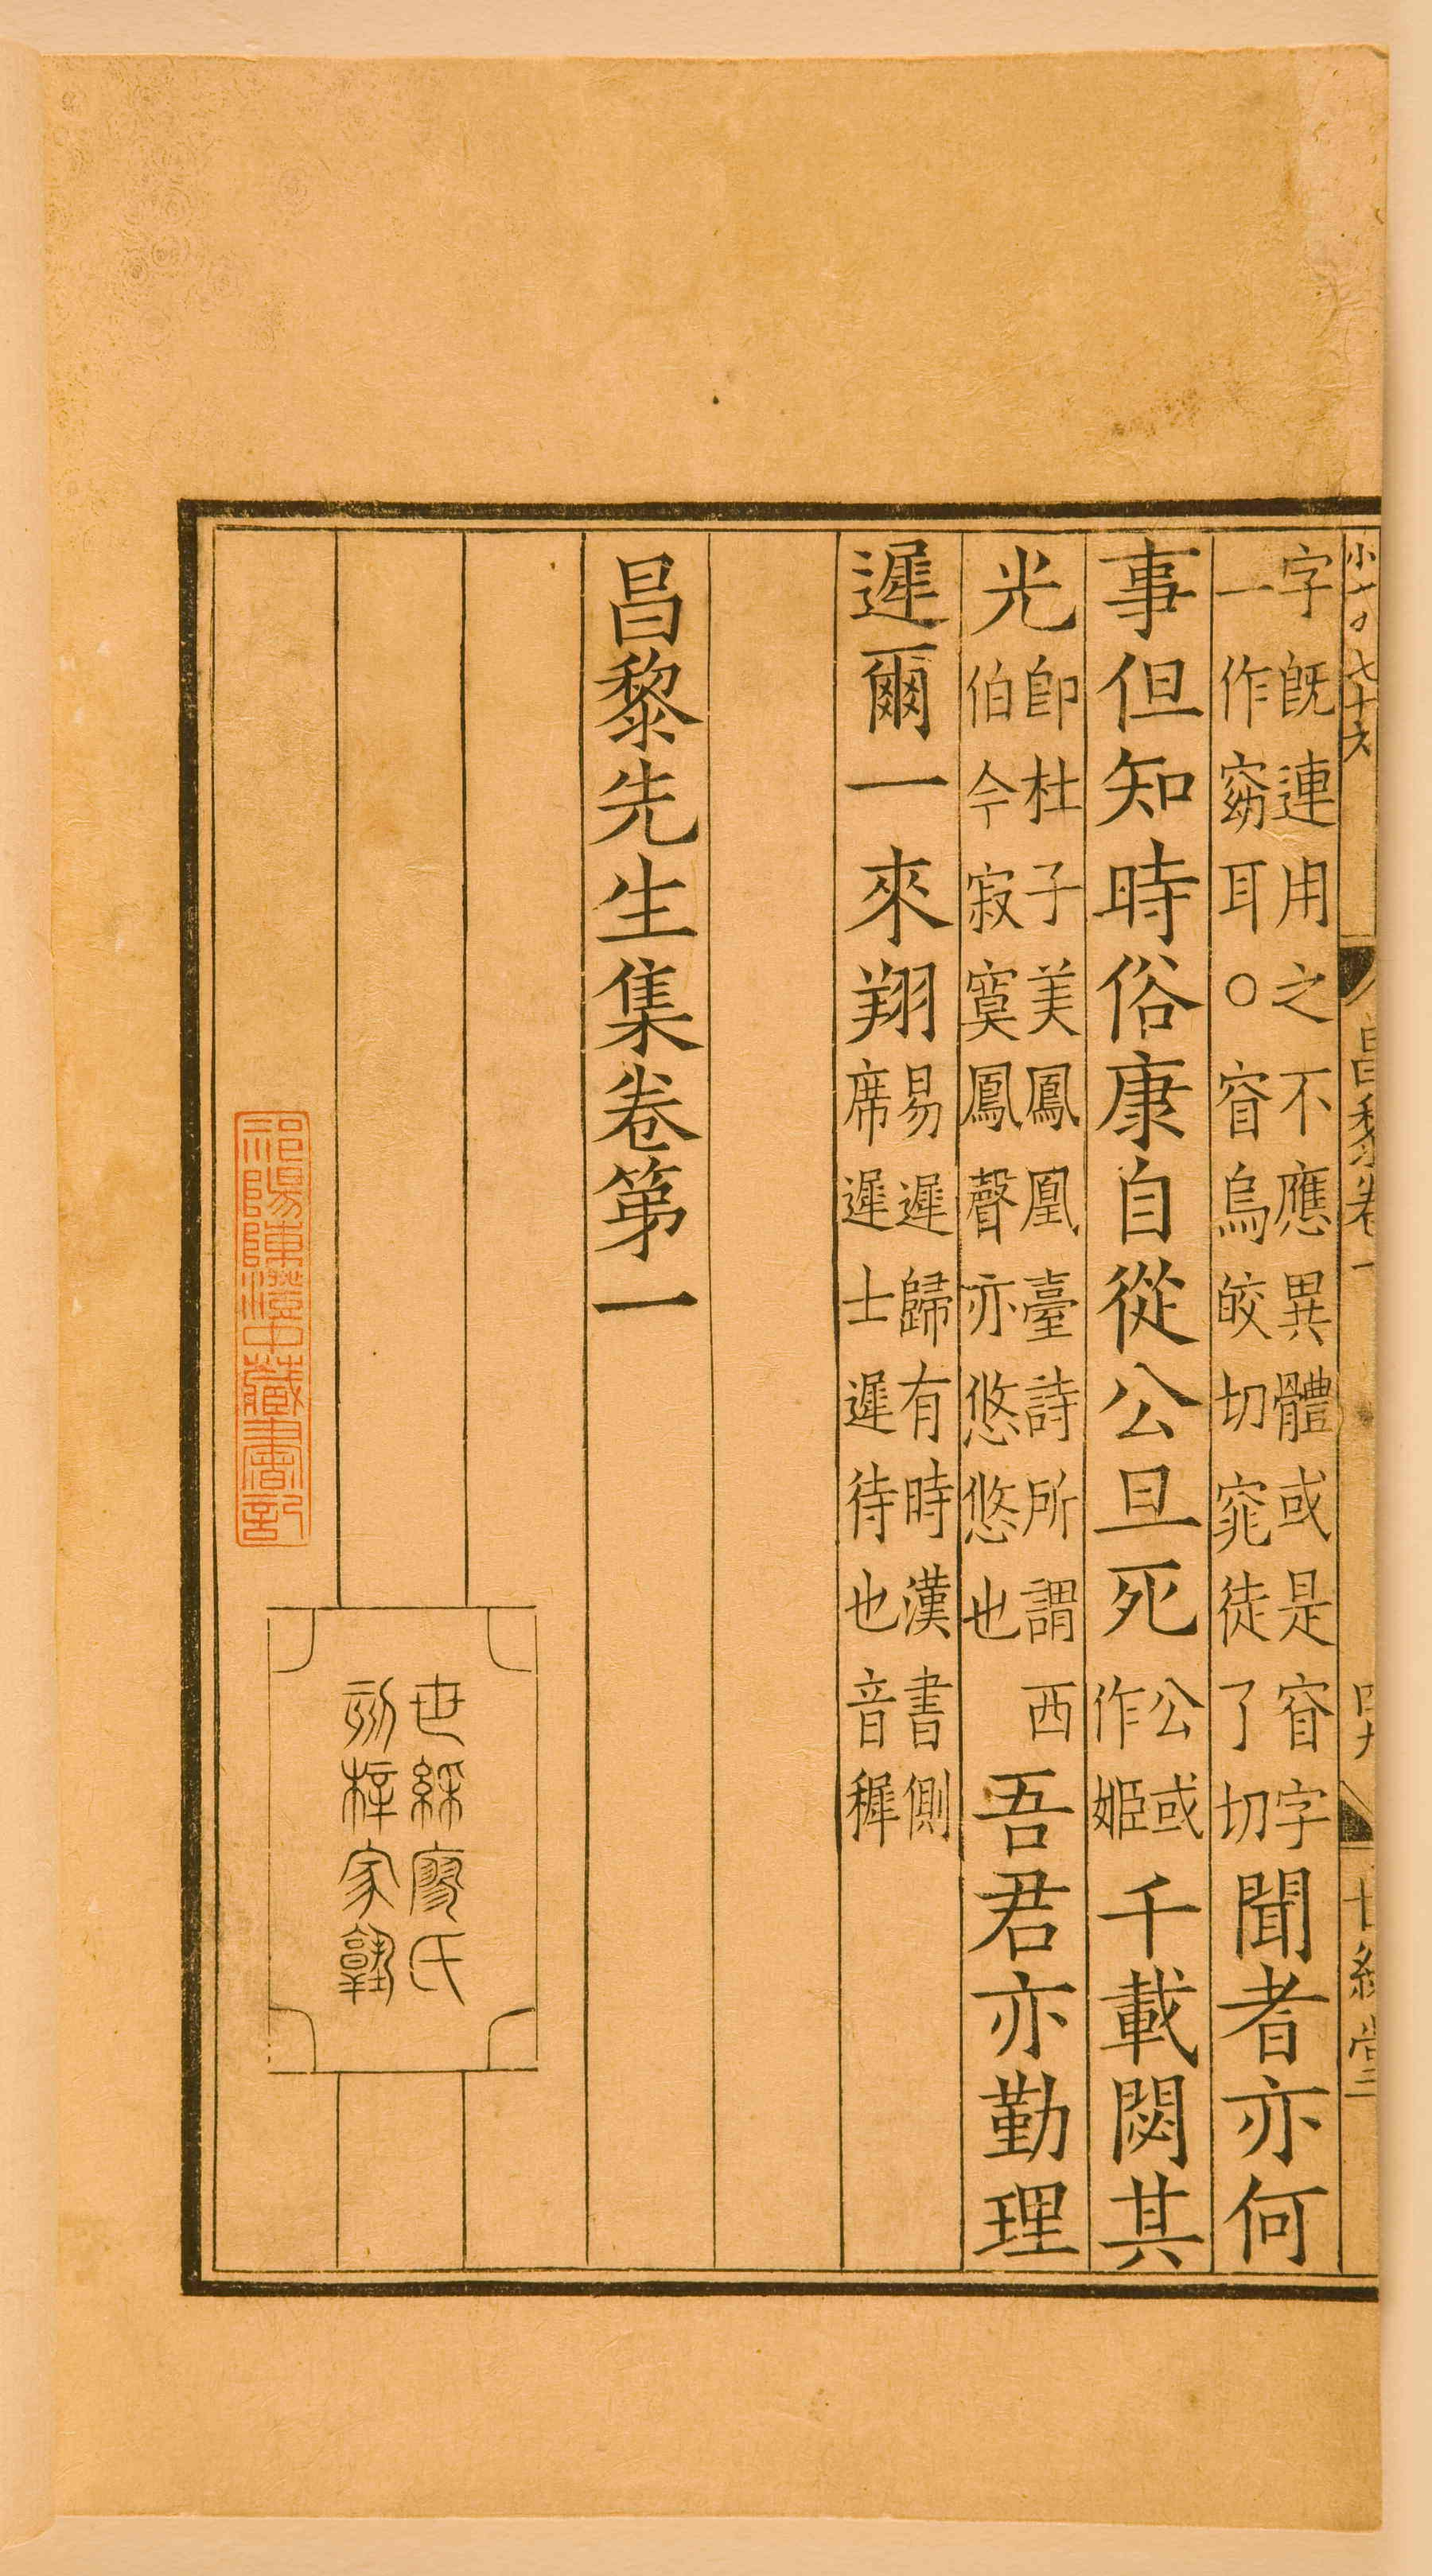 字旣連用之不應異體或是窅字
一作窈耳○窅烏皎切窕徒了切
聞者亦何
事但知時俗康自從公旦死
公或
作姬
千載閟其
光
卽杜子美鳳凰臺詩所謂西
伯今寂寞鳳聲亦悠悠也
吾君亦勤理
遲爾一來翔
易遲歸有時漢書側
席遲士遲待也音穉
昌黎先生集卷第一
世綵廖氏
刻梓家塾
祁陽陳澄中藏書記
昌黎卷一